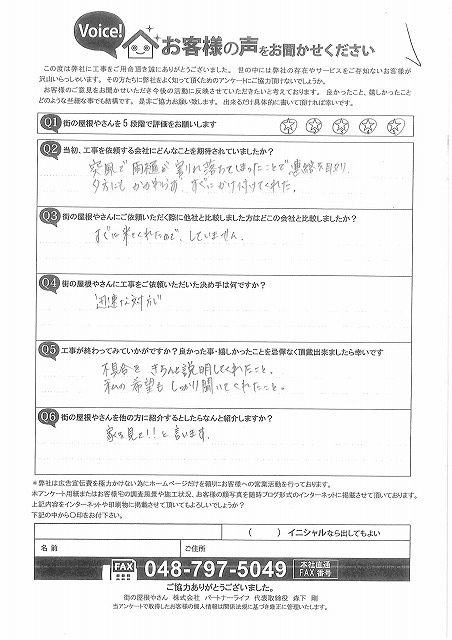 Voice!
お客様の声をお聞かせください
この度は弊社に工事をご用命頂き誠にありがとうございました。 世の中には弊社の存在やサービスをご存知ないお客様が
沢山いらっしゃいます。その方たちに弊社をよく知って頂くためのアンケートにご協力頂けないでしょうか?
お客様のご意見をお聞かせいただき今後の活動に反映させていただきたいと考えております。良かったこと、嬉しかったこと
どのような些細な事でも結構です。 是非ご協力お願い致します。 出来るだけ具体的に書いて頂ければ幸いです。
Q1 街の屋根やさんを5段階で評価をお願いします
Q2 当初、工事を依頼する会社にどんなことを期待されていましたか?
突風で雨樋が割れ落ちてしまったことで連絡を取り、
夕方にもかかわらず すぐにかけ付けてくれた。
Q3 街の屋根やさんにご依頼いただく際に他社と比較しました方はどこの会社と比較しましたか?
すぐに来てくれたので、していません。
Q4 街の屋根やさんに工事をご依頼いただいた決め手は何ですか?
迅速な対応
Q5 工事が終わってみていかがですか?良かった事・嬉しかったことを忌憚なく頂戴出来ましたら幸いです
不具合を きちんと説明してくれたこと。
私の希望も しっかり聞いてくれたこと。
Q6 街の屋根やさんを他の方に紹介するとしたらなんと紹介しますか?
家を見て!!と言います。
*弊社は広告宣伝費を極力かけない為にホームページだけを頼りにお客様への営業活動を行っております。
本アンケート用紙またはお客様宅の調査風景や施工状況、お客様の顔写真を随時ブログ形式のインターネットに掲載させて頂いております。
上記内容をインターネットや印刷物に掲載させて頂いてもよろしいでしょうか?
下記の中から〇印をお付下さい。
( ) イニシャルなら出してもよい
名前 ご住所
FAX 048-797-5049 本社直通 FAX番号
ご協力ありがとうございました。
街の屋根やさん 株式会社 パートナーライフ 代表取締役 森下 剛
当アンケートで取得したお客様の個人情報は関係法規に基づき厳正に管理いたします。